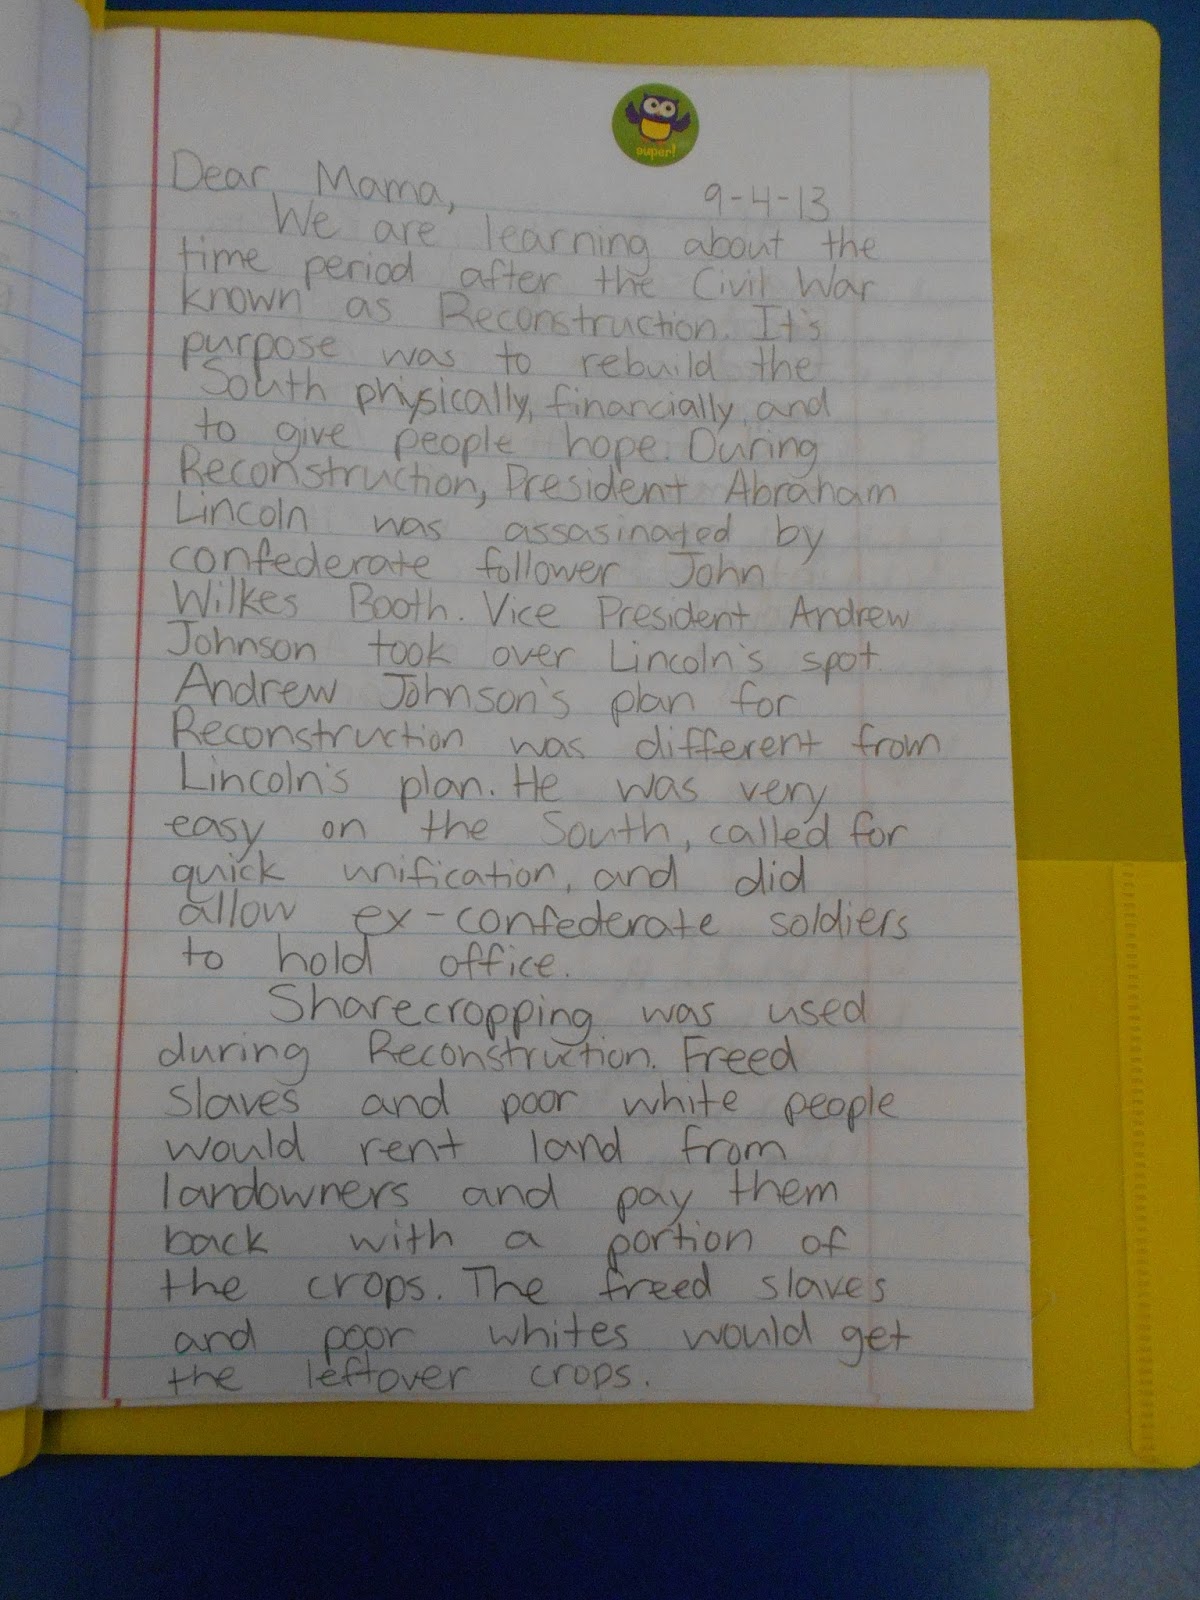 super!
Dear Mama, 9-4-13
We are learning about the
time period after the Civil War
known as Reconstruction. It's
purpose was to rebuild the
South physically, financially, and
to give people hope. During
Reconstruction, President Abraham
Lincoln was assasinated by
confederate follower John
Wilkes Booth. Vice President Andrew
Johnson took over Lincoln's spot.
Andrew Johnson's plan for
Reconstruction was different from
Lincoln's plan. He was very
easy on the South, called for
quick unification, and did
allow ex-confederate soldiers
to hold office.
Sharecropping was used
during Reconstruction. Freed
slaves and poor white people
would rent land from
landowners and pay them
back with a portion of
the crops. The freed slaves
and poor whites would get
the leftover crops.